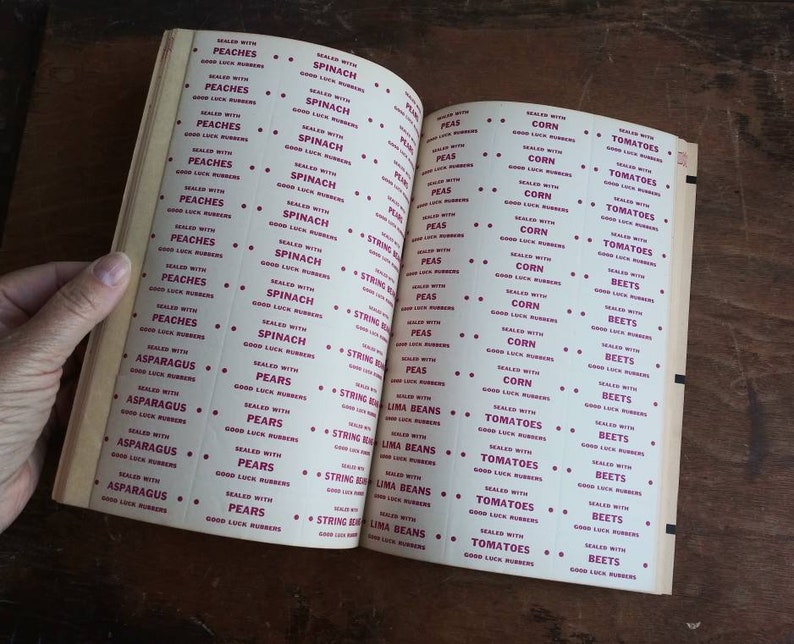 SEALED WITH
PEACHES
GOOD LUCK RUBBERS
SEALED WITH
PEACHES
GOOD LUCK RUBBERS
SEALED WITH
PEACHES
GOOD LUCK RUBBERS
SEALED WITH
PEACHES
GOOD LUCK RUBBERS
SEALED WITH
PEACHES
GOOD LUCK RUBBERS
SEALED WITH
PEACHES
GOOD LUCK RUBBERS
SEALED WITH
PEACHES
GOOD LUCK RUBBERS
SEALED WITH
PEACHES
GOOD LUCK RUBBERS
SEALED WITH
ASPARAGUS
GOOD LUCK RUBBERS
SEALED WITH
ASPARAGUS
GOOD LUCK RUBBERS
SEALED WITH
ASPARAGUS
GOOD LUCK RUBBERS
SEALED WITH
ASPARAGUS
GOOD LUCK RUBBERS
SEALED WITH
SPINACH
GOOD LUCK RUBBERS
SEALED WITH
SPINACH
GOOD LUCK RUBBERS
SEALED WITH
SPINACH
GOOD LUCK RUBBERS
SEALED WITH
SPINACH
GOOD LUCK RUBBERS
SEALED WITH
SPINACH
GOOD LUCK RUBBERS
SEALED WITH
SPINACH
GOOD LUCK RUBBERS
SEALED WITH
SPINACH
GOOD LUCK RUBBERS
SEALED WITH
SPINACH
GOOD LUCK RUBBERS
SEALED WITH
PEARS
GOOD LUCK RUBBERS
SEALED WITH
PEARS
GOOD LUCK RUBBERS
SEALED WITH
PEARS
GOOD LUCK RUBBERS
SEALED WITH
PEARS
GOOD LUCK RUBBERS
SEALED WITH
PEARS
GOOD LUCK RUBBERS
SEALED WITH
PEARS
GOOD LUCK RUBBERS
SEALED WITH
PEARS
GOOD LUCK RUBBERS
SEALED WITH
PEARS
GOOD LUCK RUBBERS
SEALED WITH
STRING BEANS
GOOD LUCK RUBBERS
SEALED WITH
STRING BEANS
GOOD LUCK RUBBERS
SEALED WITH
STRING BEANS
GOOD LUCK RUBBERS
SEALED WITH
STRING BEANS
GOOD LUCK RUBBERS
SEALED WITH
STRING BEANS
GOOD LUCK RUBBERS
SEALED WITH
STRING BEANS
GOOD LUCK RUBBERS
SEALED WITH
STRING BEANS
GOOD LUCK RUBBERS
SEALED WITH
STRING BEANS
GOOD LUCK RUBBERS
SEALED WITH
PEAS
GOOD LUCK RUBBERS
SEALED WITH
PEAS
GOOD LUCK RUBBERS
SEALED WITH
PEAS
GOOD LUCK RUBBERS
SEALED WITH
PEAS
GOOD LUCK RUBBERS
SEALED WITH
PEAS
GOOD LUCK RUBBERS
SEALED WITH
PEAS
GOOD LUCK RUBBERS
SEALED WITH
PEAS
GOOD LUCK RUBBERS
SEALED WITH
PEAS
GOOD LUCK RUBBERS
SEALED WITH
LIMA BEANS
GOOD LUCK RUBBERS
SEALED WITH
LIMA BEANS
GOOD LUCK RUBBERS
SEALED WITH
LIMA BEANS
GOOD LUCK RUBBERS
SEALED WITH
LIMA BEANS
GOOD LUCK RUBBERS
SEALED WITH
CORN
GOOD LUCK RUBBERS
SEALED WITH
CORN
GOOD LUCK RUBBERS
SEALED WITH
CORN
GOOD LUCK RUBBERS
SEALED WITH
CORN
GOOD LUCK RUBBERS
SEALED WITH
CORN
GOOD LUCK RUBBERS
SEALED WITH
CORN
GOOD LUCK RUBBERS
SEALED WITH
CORN
GOOD LUCK RUBBERS
SEALED WITH
CORN
GOOD LUCK RUBBERS
SEALED WITH
TOMATOES
GOOD LUCK RUBBERS
SEALED WITH
TOMATOES
GOOD LUCK RUBBERS
SEALED WITH
TOMATOES
GOOD LUCK RUBBERS
SEALED WITH
TOMATOES
GOOD LUCK RUBBERS
SEALED WITH
TOMATOES
GOOD LUCK RUBBERS
SEALED WITH
TOMATOES
GOOD LUCK RUBBERS
SEALED WITH
TOMATOES
GOOD LUCK RUBBERS
SEALED WITH
TOMATOES
GOOD LUCK RUBBERS
SEALED WITH
BEETS
GOOD LUCK RUBBERS
SEALED WITH
BEETS
GOOD LUCK RUBBERS
SEALED WITH
BEETS
GOOD LUCK RUBBERS
SEALED WITH
BEETS
GOOD LUCK RUBBERS
SEALED WITH
BEETS
GOOD LUCK RUBBERS
SEALED WITH
BEETS
GOOD LUCK RUBBERS
SEALED WITH
BEETS
GOOD LUCK RUBBERS
SEALED WITH
BEETS
GOOD LUCK RUBBERS